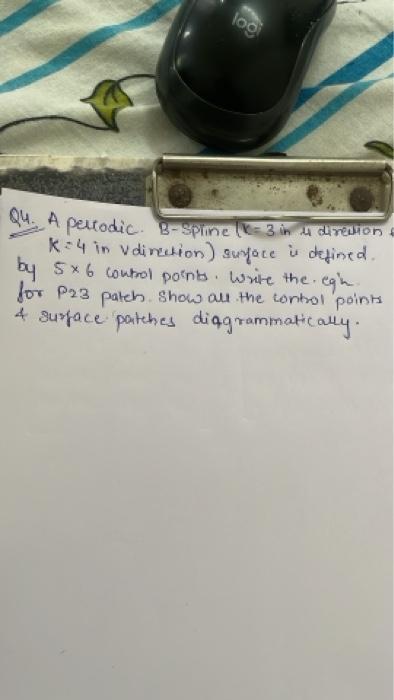 logi
Q4. A periodic B-Spline (K=3 in u direction &
K=4 in v direction) surface is defined.
by 5×6 control points. Write the eqn.
for P23 patch. Show all the control points
& surface patches diagrammatically.